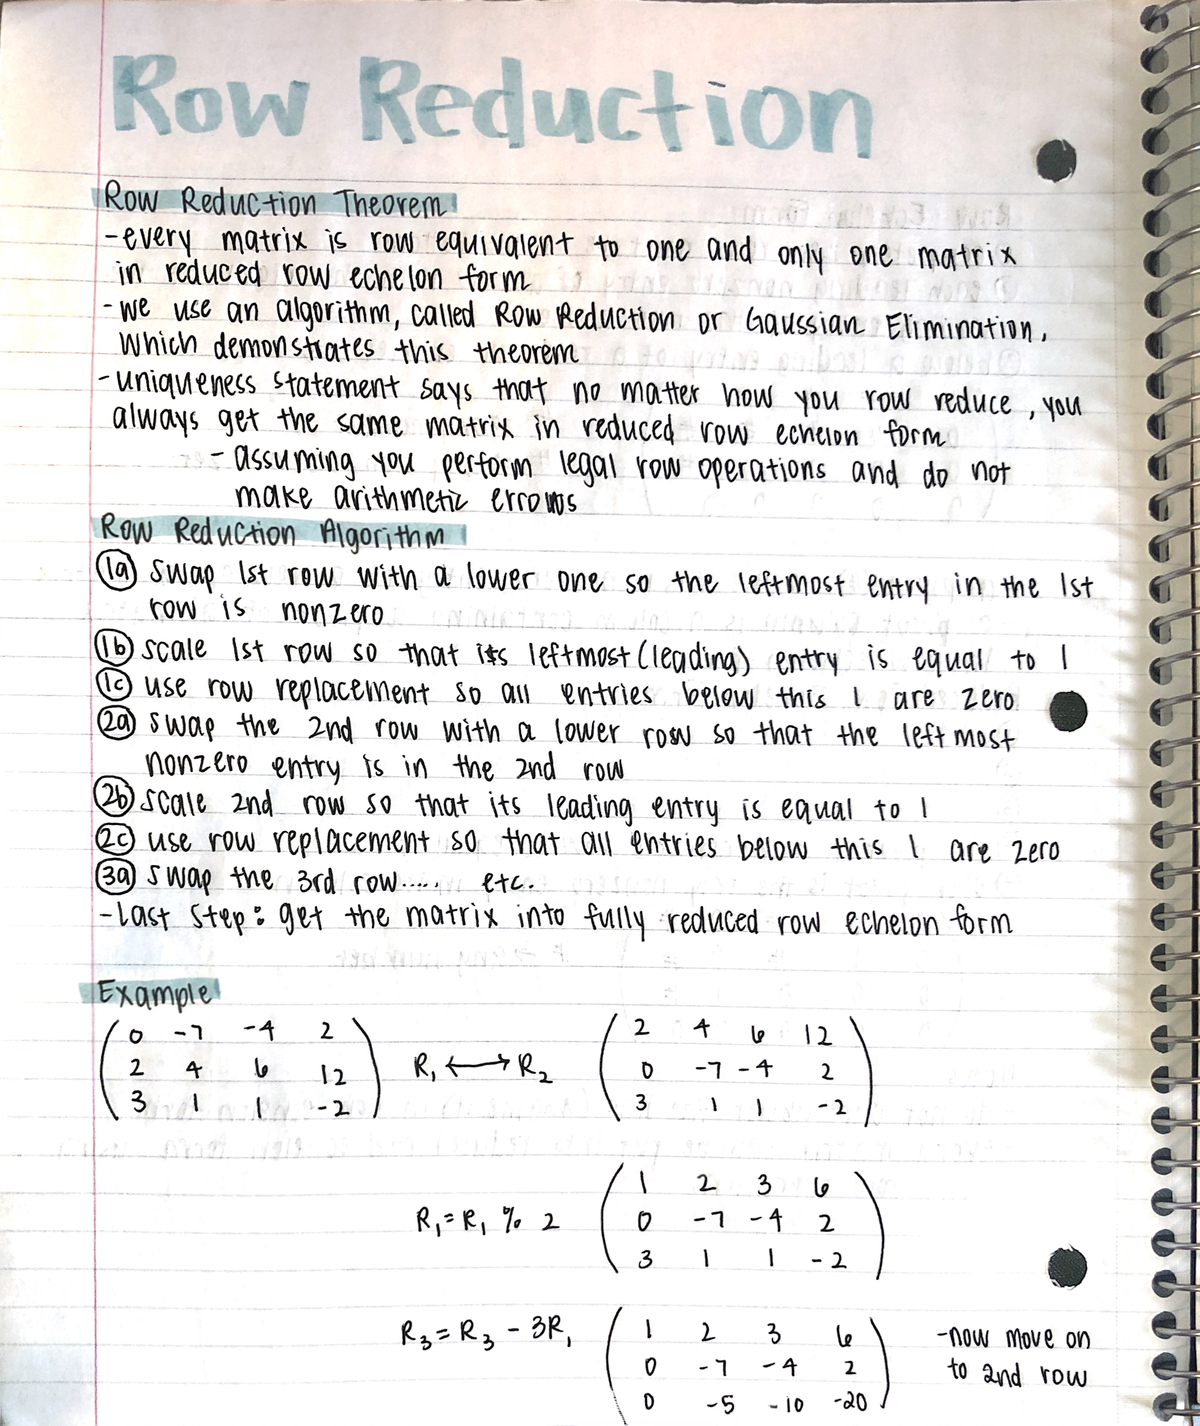 Row Reduction
Row Reduction Theorem
-every matrix is row equivalent to one and only one matrix
in reduced row echelon form
-we use an algorithm, called Row Reduction or Gaussian Elimination,
which demonstrates this theorem
-uniqueness statement says that no matter how you row reduce, you
always get the same matrix in reduced row echelon form
- assuming you perform legal row operations and do not
make arithmetic errors
Row Reduction Algorithm
1a swap 1st row with a lower one so the leftmost entry in the 1st
row is nonzero
1b scale 1st row so that its leftmost (leading) entry is equal to 1
1c use row replacement so all entries below this 1 are zero
2a swap the 2nd row with a lower row so that the left most
nonzero entry is in the 2nd row
2b scale 2nd row so that its leading entry is equal to 1
2c use row replacement so that all entries below this 1 are zero
3a swap the 3rd row..... etc.
-Last Step: get the matrix into fully reduced row echelon form
Example
0 -7 -4 2
2 4 6 12
3 1 1 -2
R₁ ↔ R₂
2 4 6 12
0 -7 -4 2
3 1 1 -2
R₁ = R₁ % 2
1 2 3 6
0 -7 -4 2
3 1 1 -2
R₃ = R₃ - 3R₁
1 2 3 6
0 -7 -4 2
0 -5 -10 -20
-now move on
to 2nd row